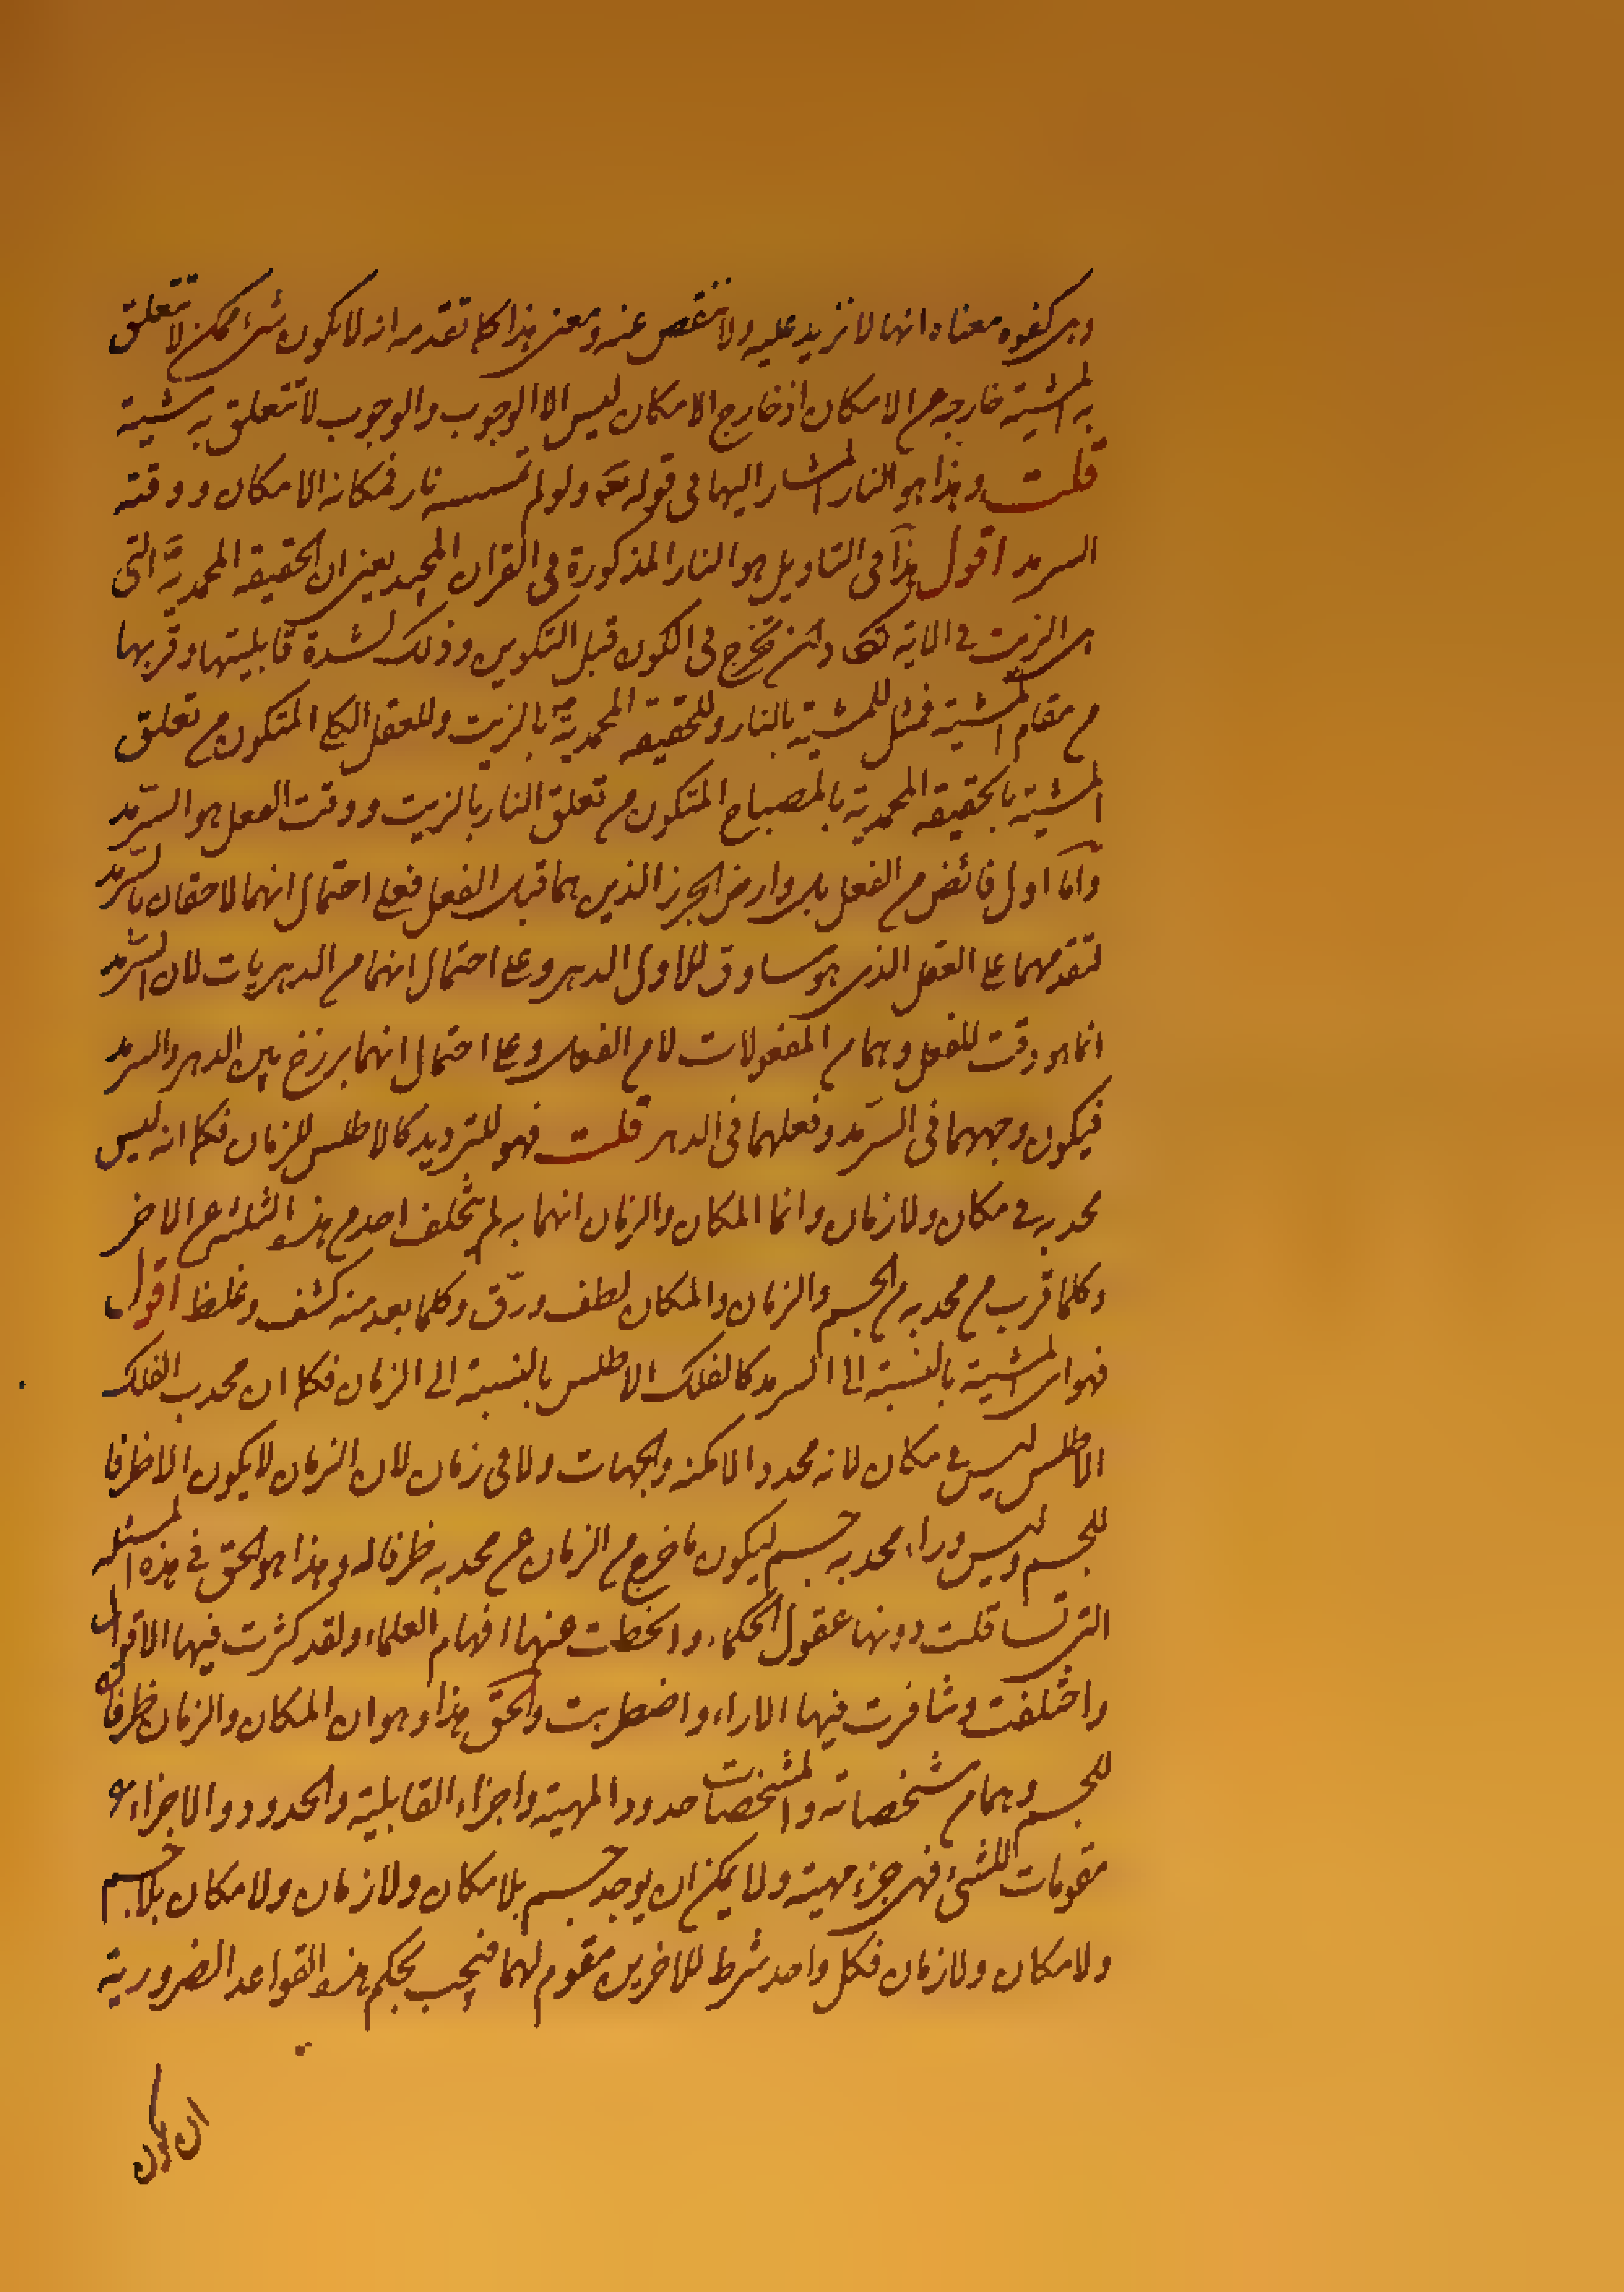 وهى كفوه معناه انها لا تزيد عليه ولا تنقص عنه ومعنى هذا كما تقدم انه لا يكون شىء ممكن لا تتعلق
به المشية خارجه عن الامكان اذ خارج الامكان ليس الا الوجوب والوجوب لا تتعلق به مشية
قلت وهذا هو النار المشار اليها فى قوله تعالى ولو لم تمسسه نار فمكانه الامكان ووقته
السرمد اقول هذا فى التاويل هو النار المذكورة فى القران المجيد يعنى ان الحقيقه المحمديّة التى
هى الزيت فى الاية تكاد تخرج فى الكون قبل التكوين وذلك لشدة قابليتها وقربها
من مقام المشية فمثل للمشية بالنار وللحقيقه المحمدية بالزيت وللعقل الكلى المتكون من تعلق
المشية بالحقيقه المحمدية بالمصباح المتكون من تعلق النار بالزيت ووقت الفعل هو السرمد
واما اول فائض من الفعل بل وارض الجرز الذين هما قبل الفعل فعلى احتمال انهما لاحقان بالسّرمد
لتقدمهما على العقل الذى هو مساوق للاول الدهر وعلى احتمال انهما من الدهريات لان السّرمد
انما هو وقت للفعل وهما من المفعولات لا من الفعل وعلى احتمال انهما برزخ بين الدهر والسرمد
فيكون وجههما فى السّرمد وفعلهما فى الدهر قلت فهو للسرمد كالاطلس للزمان فكما انه ليس
محدبه فى مكان ولا زمان وانما المكان والزمان انهما به لم يتخلف احد من هذه الثلثة عن الاخر
وكلما قرب من محدبه من الجسم والزمان والمكان لطف ورقّ وكلما بعد منه كثف وغلظ اقول
فهو اى المشية بالنسبة الى السرمد كالفلك الاطلس بالنسبة الى الزمان فكما ان محدب الفلك
الاطلس ليس فى مكان لانه محدد الامكنه والجهات ولا فى زمان لان الزمان لا يكون الا ظرفا
للجسم وليس وراء محدبه جسم ليكون ما خرج من الزمان عن محدبه ظرفا له وهذا هو الحق فى هذه المسئله
التى تساقلت دونها عقول الحكماء وانحطت عنها افهام العلماء ولقد كثرت فيها الاقوال
واختلفت وتنافرت فيها الاراء واضطربت والحق هذا وهو ان المكان والزمان ظرفان
للجسم وهما من مشخصاته والمشخصات حدود المهية واجزاء القابلية والحدود والاجزاء
مقومات للشىء فهى جزء مهية ولا يمكن ان يوجد جسم بلا مكان ولا زمان ولا مكان بلا جسم
ولا مكان ولا زمان فكل واحد شرط للاخرين مقوم لهما فيجب بحكم هذه القواعد الضرورية
ان يكون